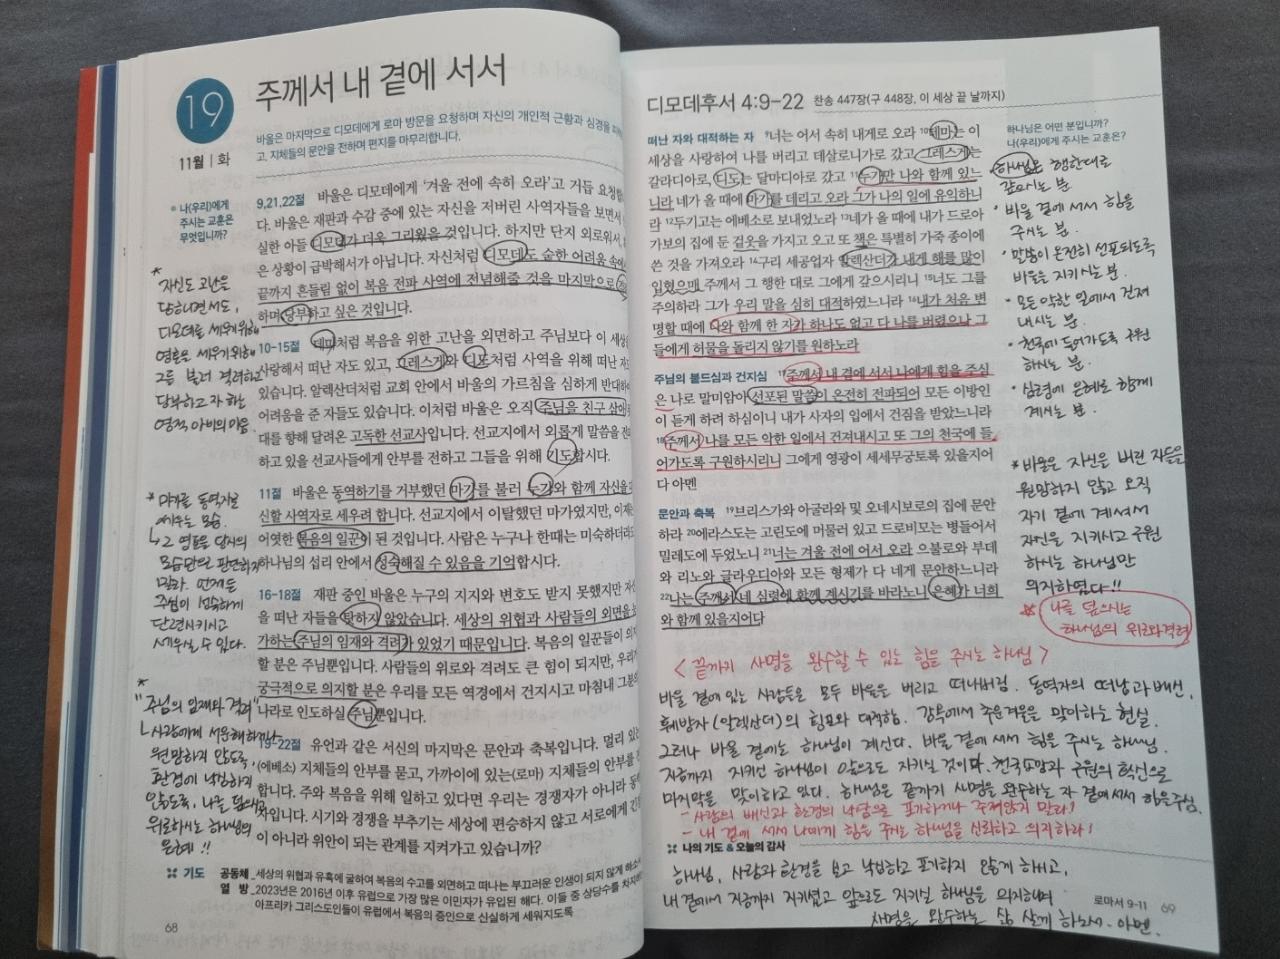 19
11월 | 화
주께서 내 곁에 서서
바울은 마지막으로 디모데에게 로마 방문을 요청하며 자신의 개인적 근황과 심경을
고, 지체들의 문안을 전하며 편지를 마무리합니다.
나(우리)에게
주시는 교훈은
무엇입니까?
9,21,22절 바울은 디모데에게 '겨울 전에 속히 오라'고 거듭 요청
다. 바울은 재판과 수감 중에 있는 자신을 저버린 사역자들을 보면서
실한 아들 디모데가 더욱 그리웠을 것입니다. 하지만 단지 외로워서,
은 상황이 급박해서가 아닙니다. 자신처럼 디모데도 숱한 어려움 속에
끝까지 흔들림 없이 복음 전파 사역에 전념해줄 것을 마지막으로
하며 당부하고 싶은 것입니다.
10-15절 데마처럼 복음을 위한 고난을 외면하고 주님보다 이 세상
사랑해서 떠난 자도 있고, 그레스게와 디도처럼 사역을 위해 떠난 자
있습니다. 알렉산더처럼 교회 안에서 바울의 가르침을 심하게 반대하
어려움을 준 자들도 있습니다. 이처럼 바울은 오직 주님을 친구 삼아
대를 향해 달려온 고독한 선교사입니다. 선교지에서 외롭게 말씀을 전
하고 있을 선교사들에게 안부를 전하고 그들을 위해 기도합시다.
11절 바울은 동역하기를 거부했던 마가를 불러 누가와 함께 자신을
신할 사역자로 세우려 합니다. 선교지에서 이탈했던 마가였지만, 이제
어엿한 복음의 일꾼이 된 것입니다. 사람은 누구나 한때는 미숙하더라
하나님의 섭리 안에서 성숙해질 수 있음을 기억합시다.
16-18절 재판 중인 바울은 누구의 지지와 변호도 받지 못했지만 자신
을 떠난 자들을 탓하지 않았습니다. 세상의 위협과 사람들의 외면을
가하는 주님의 임재와 격려가 있었기 때문입니다. 복음의 일꾼들이 의지
할 분은 주님뿐입니다. 사람들의 위로와 격려도 큰 힘이 되지만, 우리가
궁극적으로 의지할 분은 우리를 모든 역경에서 건지시고 마침내 그분의
나라로 인도하실 주님뿐입니다.
19-22절 유언과 같은 서신의 마지막은 문안과 축복입니다. 멀리 있는
(에베소) 지체들의 안부를 묻고, 가까이에 있는(로마) 지체들의 안부를 전
합니다. 주와 복음을 위해 일하고 있다면 우리는 경쟁자가 아니라 동
자입니다. 시기와 경쟁을 부추기는 세상에 편승하지 않고 서로에게 긴
이 아니라 위안이 되는 관계를 지켜가고 있습니까?
기도 공동체 세상의 위협과 유혹에 굴하여 복음의 수고를 외면하고 떠나는 부끄러운 인생이 되지 않게 하소서
열 방 2023년은 2016년 이후 유럽으로 가장 많은 이민자가 유입된 해다. 이들 중 상당수를 차지
아프리카 그리스도인들이 유럽에서 복음의 증인으로 신실하게 세워지도록
68
* 자신도 고난을
당하면서도,
디모데를 세우기 위해
영혼을 세우기 위해
그를 불러 격려하고
당부하고자 하는
영적 아비의 마음.
* 마가를 동역자로
세우는 모습.
그 영혼을 당시의
모습만으로 판단하지
말라. 언제든
주님이 성숙하게
단련시키시고
세우실 수 있다.
* "주님의 임재와 격려"
사람에게 서운해하거나
원망하지 않도록,
환경에 낙심하지
않도록, 나를 덮으시고
위로하시는 하나님의
은혜!!
디모데후서 4:9-22 찬송 447장(구 448장, 이 세상 끝 날까지)
떠난 자와 대적하는 자 9너는 어서 속히 내게로 오라 10데마는 이
세상을 사랑하여 나를 버리고 데살로니가로 갔고 그레스게는
갈라디아로, 디도는 달마디아로 갔고 11누가만 나와 함께 있느
니라 네가 올 때에 마가를 데리고 오라 그가 나의 일에 유익하니
라 12두기고는 에베소로 보내었노라 13네가 올 때에 내가 드로아
가보의 집에 둔 겉옷을 가지고 오고 또 책은 특별히 가죽 종이에
쓴 것을 가져오라 14구리 세공업자 알렉산더가 내게 해를 많이
입혔으매 주께서 그 행한 대로 그에게 갚으시리니 15너도 그를
주의하라 그가 우리 말을 심히 대적하였느니라 16내가 처음 변
명할 때에 나와 함께 한 자가 하나도 없고 다 나를 버렸으나 그
들에게 허물을 돌리지 않기를 원하노라
주님의 붙드심과 건지심 17주께서 내 곁에 서서 나에게 힘을 주심
은 나로 말미암아 선포된 말씀이 온전히 전파되어 모든 이방인
이 듣게 하려 하심이니 내가 사자의 입에서 건짐을 받았느니라
18주께서 나를 모든 악한 일에서 건져내시고 또 그의 천국에 들
어가도록 구원하시리니 그에게 영광이 세세무궁토록 있을지어
다 아멘
문안과 축복 19브리스가와 아굴라와 및 오네시보로의 집에 문안
하라 20에라스도는 고린도에 머물러 있고 드로비모는 병들어서
밀레도에 두었노니 21너는 겨울 전에 어서 오라 으불로와 부데
와 리노와 글라우디아와 모든 형제가 다 네게 문안하느니라
22나는 주께서 네 심령에 함께 계시기를 바라노니 은혜가 너희
와 함께 있을지어다
하나님은 어떤 분입니까?
나(우리)에게 주시는 교훈은?
하나님은 행한대로
갚으시는 분
• 바울 곁에 서서 힘을
주시는 분.
• 말씀이 온전히 선포되도록
바울을 지키시는 분.
• 모든 악한 일에서 건져
내시는 분.
• 천국에 들어가도록 구원
하시는 분.
• 심령에 은혜로 함께
계시는 분.
* 바울은 자신을 버린 자들을
원망하지 않고 오직
자기 곁에 계셔서
자신을 지키시고 구원
하시는 하나님만
의지하였다!!
* 나를 덮으시는
하나님의 위로와 격려
< 끝까지 사명을 완수할 수 있는 힘을 주시는 하나님 >
바울 곁에 있는 사람들은 모두 바울을 버리고 떠나버림. 동역자의 떠남과 배신,
훼방자(알렉산더)의 횡포와 대적함. 감옥에서 추운 겨울을 맞이하는 현실.
그러나 바울 곁에는 하나님이 계신다. 바울 곁에 서서 힘을 주시는 하나님.
지금까지 지키신 하나님이 앞으로도 지키실 것이다. 천국 소망과 구원의 확신으로
마지막을 맞이하고 있다. 하나님은 끝까지 사명을 완수하는 자 곁에 서서 힘을 주심.
- 사람의 배신과 환경의 낙담으로 포기하거나 주저앉지 말라!
- 내 곁에 서서 나에게 힘을 주시는 하나님을 신뢰하고 의지하라!
나의 기도 & 오늘의 감사
하나님, 사람과 환경을 보고 낙심하고 포기하지 않게 하시고,
내 곁에서 지금까지 지키셨고 앞으로도 지키실 하나님을 의지하며
사명을 완수하는 삶 살게 하소서. 아멘.
로마서 9-11 69